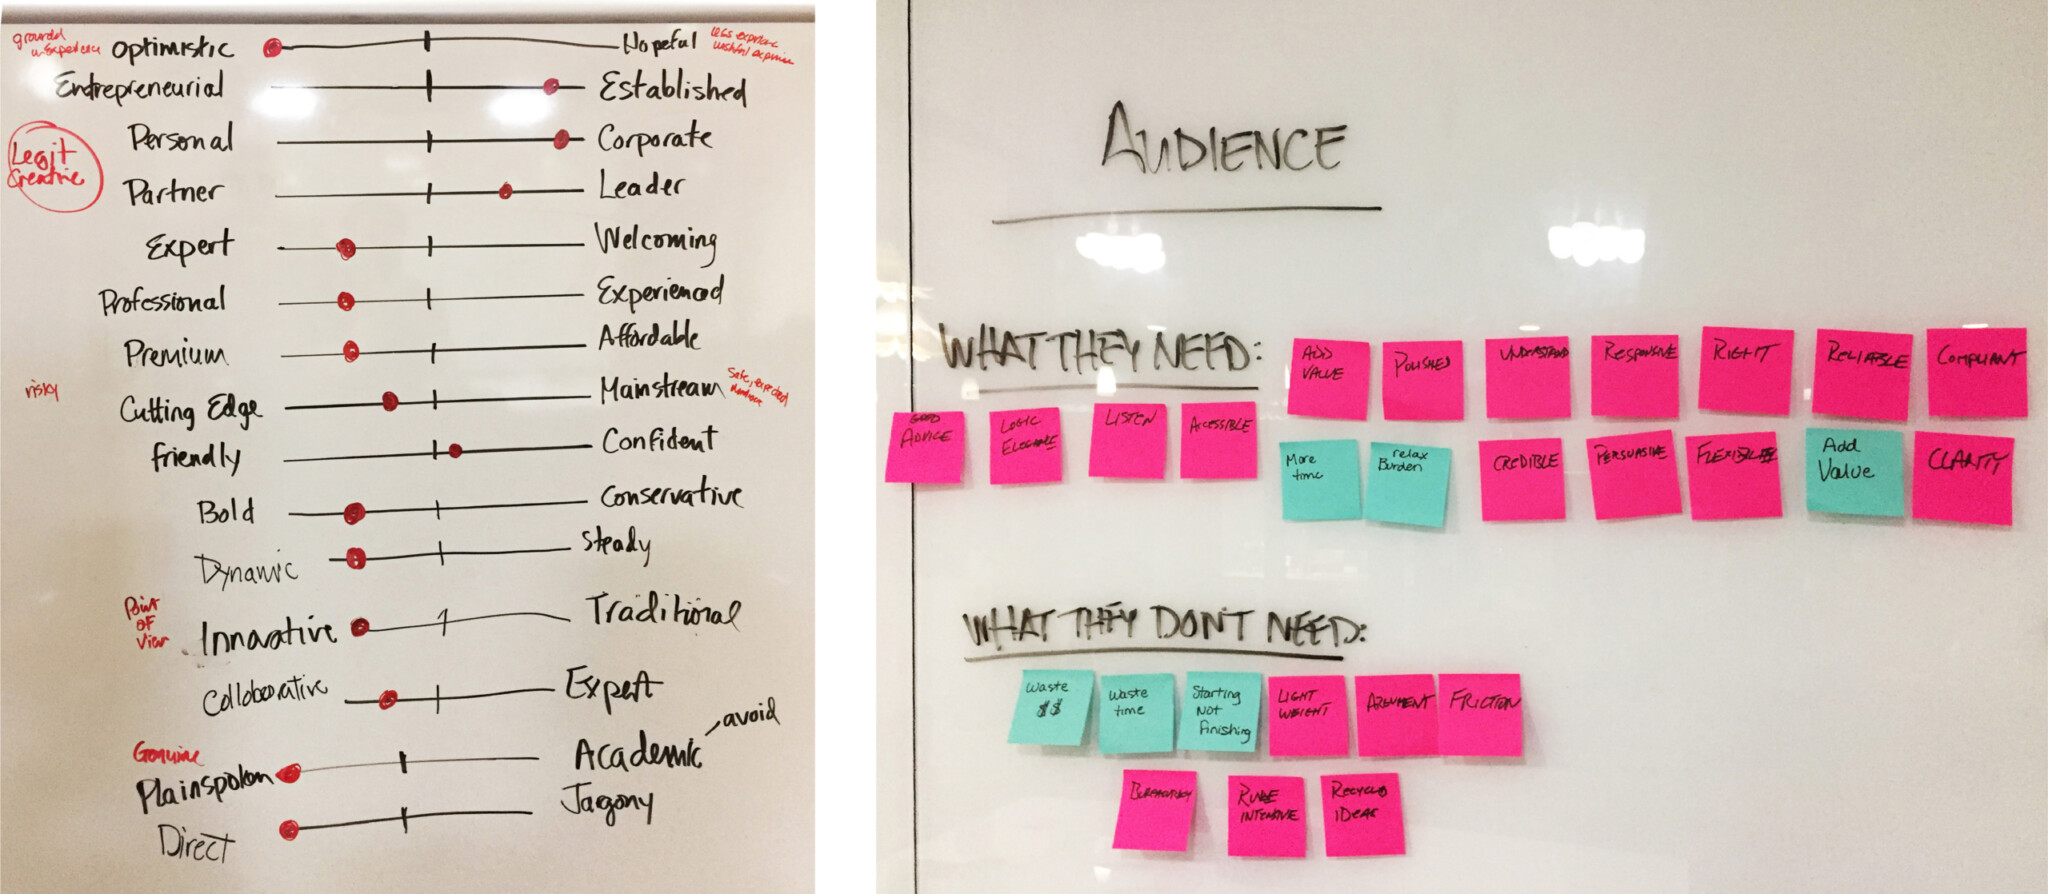 grounded
w experience
optimistic
Hopeful
less experience
Entrepreneurial
Established
Personal
Corporate
Legit
Creative
Partner
Leader
Expert
Welcoming
Professional
Experienced
Premium
Affordable
risky
Cutting Edge
Mainstream
safe, expected
friendly
Confident
Bold
Conservative
Dynamic
Steady
Point
OF
View
Innovative
Traditional
Collaborative
Expert
avoid
Genuine
Plainspoken
Academic
Direct
Jargony
AUDIENCE
WHAT THEY NEED:
ADD
VALUE
POLISHED
UNDERSTAND
RESPONSIVE
RIGHT
RELIABLE
COMPLIANT
GOOD
ADVICE
LOGIC
LISTEN
ACCESSIBLE
More
time
relax
Burden
CREDIBLE
PERSUASIVE
Add
Value
CLARITY
WHAT THEY DON'T NEED:
Waste
$$
Waste
time
Starting
Not
Finishing
LIGHT
WEIGHT
ARGUMENT
FRICTION
RULE
INTENSIVE
RECYCLED
IDEAS